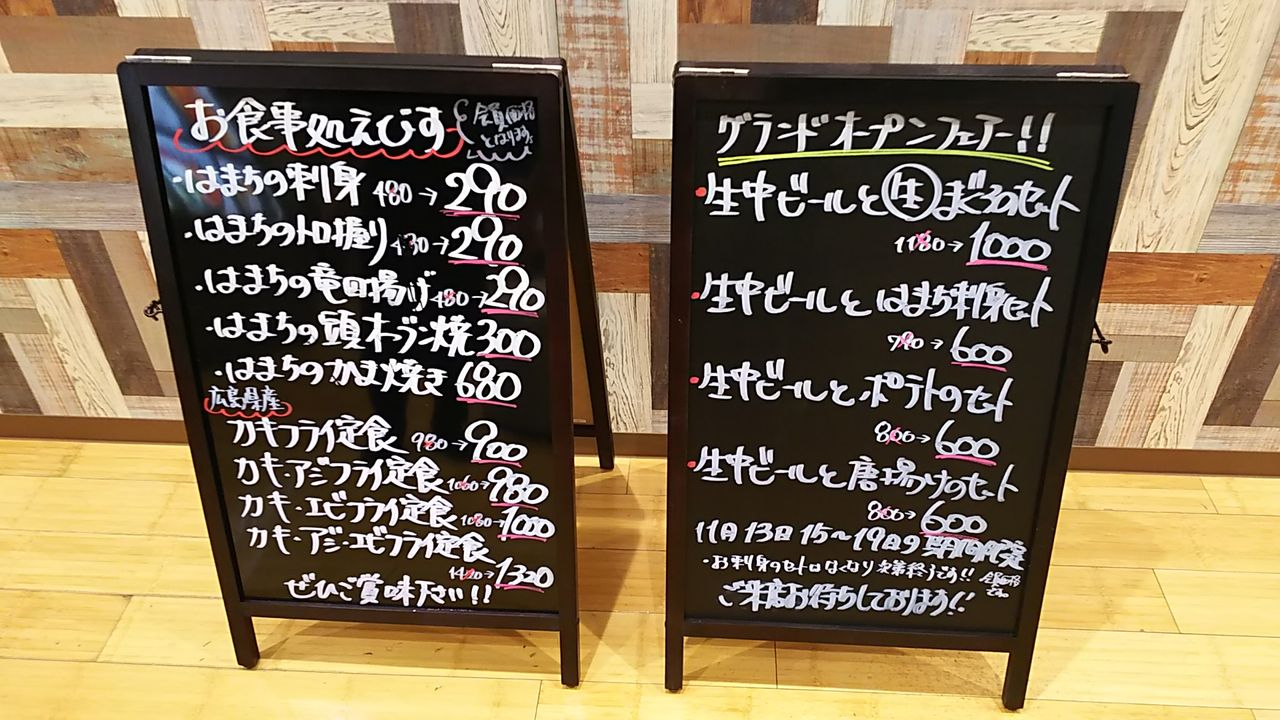 お食事処えびす
会員価格
となります。
・はまちの刺身 480→290
・はまちのトロ握り 430→290
・はまちの竜田揚げ 480→290
・はまちの頭オーブン焼 300
・はまちのかま焼き 680
広島県産
カキフライ定食 980→900
カキ・アジフライ定食 1060→980
カキ・エビフライ定食 1080→1000
カキ・アジ・エビフライ定食
1420→1320
ぜひご賞味下さい!!
グランドオープンフェアー!!
・生中ビールと生まぐろのセット
1180→1000
・生中ビールとはまち刺身セット
→600
・生中ビールとポテトのセット
800→600
・生中ビールと唐揚げのセット
800→600
11月13日15~19日9 期間限定
・お刺身のセットはなくなり次第終了です!! 会員価格
です。
ご来店お待ちしております!!